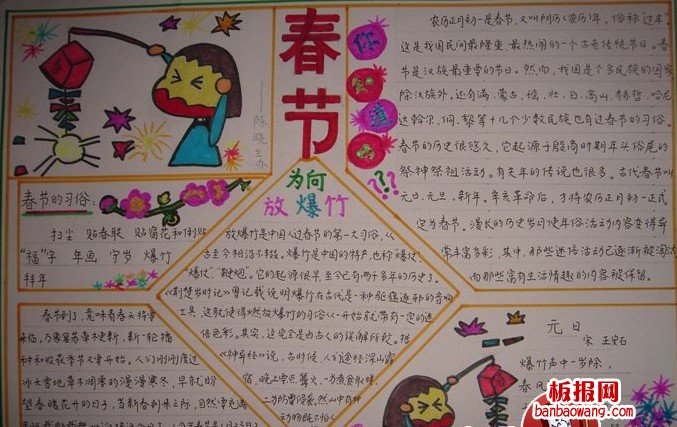 春节
你知道
???
陈晓 办
农历正月初一是春节，又叫阴历（农历）年，俗称"过年"
这是我国民间最隆重、最热闹的一个古老传统节日。春
节是汉族最重要的节日。然而，我国是个多民族的国家
除汉族外，还有满、蒙古、瑶、壮、白、高山、赫哲、哈尼
达斡尔、侗、黎等十几个少数民族也有过春节的习俗。
春节的历史很悠久，它起源于殷商时期年头俗尾的
祭神祭祖活动。有关年的传说也很多。古代春节叫
元日、元旦、新年。辛亥革命后，才将农历正月初一正式
定为春节。漫长的历史岁月使年俗活动内容变得异
常丰富多彩，其中，那些迷信活动已逐渐被淘汰
而那些富有生活情趣的内容被保留。
春节的习俗：
扫尘 贴春联 贴窗花和倒贴
"福"字 年画 守岁 爆竹
拜年
为何
放爆竹
放爆竹是中国人过春节的第一大习俗，
古至今相沿不辍。爆竹是中国的特产，也称"爆仗"
"炮仗"、"鞭炮"。它的起源很早，至今已有两千多年的历史了。
《荆楚岁时记》曾记载说明爆竹在古代是一种驱瘟逐邪的音响
工具，这就使得燃放爆竹的习俗从一开始就带有一定的迷
信色彩。其实，这完全是由古人的误解所致。据
《神异经》说，古时候，人们途经深山露
宿，晚上要点篝火，一为煮食取暖，
二为防止野兽侵袭。然山中有种
动物既不怕人
春节到了，意味着春天将要
来临，万象复苏草木更新，新一轮播
种和收获季节又要开始。人们刚刚度过
冰天雪地草木凋零的漫漫寒冬，早就盼
望春暖花开的日子，当新春到来之际，自然要充满
元日
宋 王安石
爆竹声中一岁除，
春风
板报网
banbaowang.com